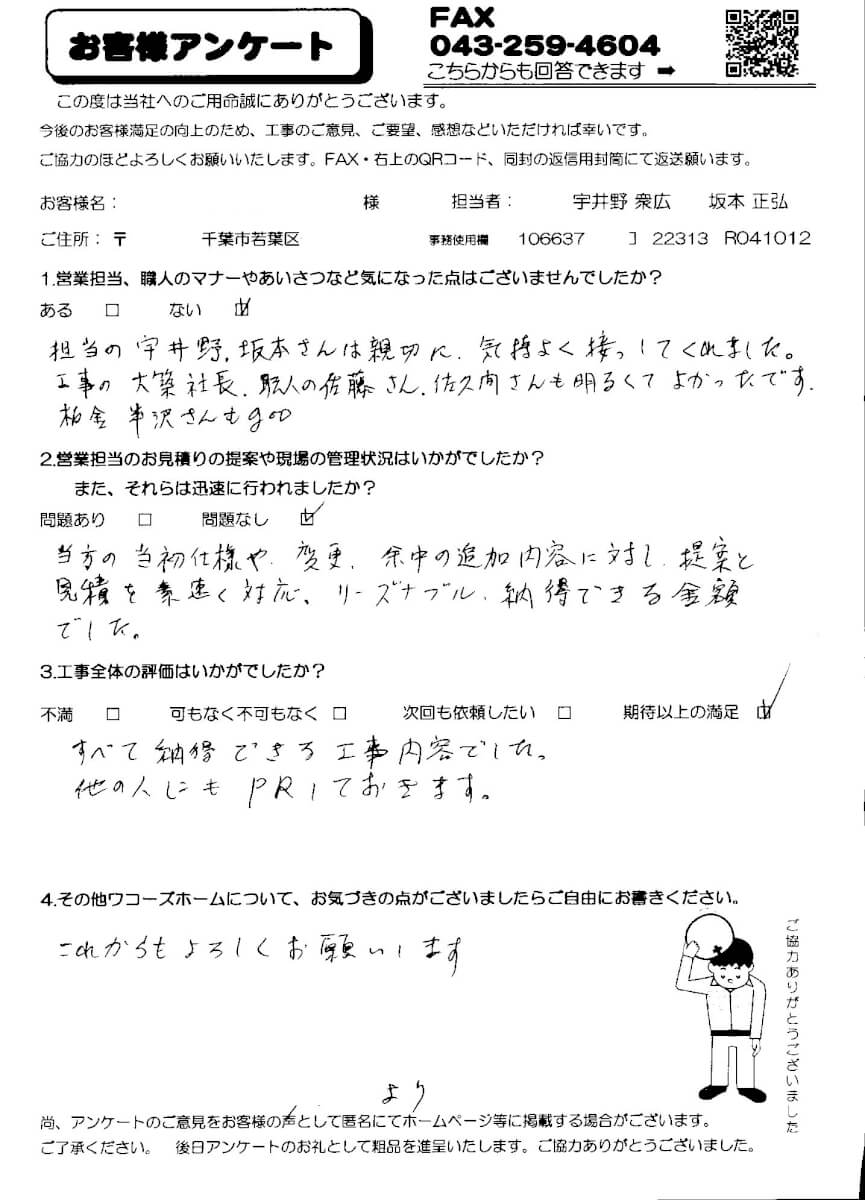 お客様アンケート
FAX
043-259-4604
こちらからも回答できます ➡
この度は当社へのご用命誠にありがとうございます。
今後のお客様満足の向上のため、工事のご意見、ご要望、感想などいただければ幸いです。
ご協力のほどよろしくお願いいたします。FAX・右上のQRコード、同封の返信用封筒にて返送願います。
お客様名： 様 担当者： 宇井野 衆広 坂本 正弘
ご住所：〒 千葉市若葉区 事務使用欄 106637 22313 R041012
1.営業担当、職人のマナーやあいさつなど気になった点はございませんでしたか？
ある □ ない ☑
担当の宇井野、坂本さんは親切に、気持よく接っしてくれました。
工事の大築社長、職人の佐藤さん、佐久間さんも明るくてよかったです.
板金 半沢さんもgoo
2.営業担当のお見積りの提案や現場の管理状況はいかがでしたか？
また、それらは迅速に行われましたか？
問題あり □ 問題なし ☑
当方の当初仕様や、変更、余中の追加内容に対し、提案と
見積を素速く対応、リーズナブル、納得できる金額
でした。
3.工事全体の評価はいかがでしたか？
不満 □ 可もなく不可もなく □ 次回も依頼したい □ 期待以上の満足 ☑
すべて納得できる工事内容でした。
他の人にもPRしておきます。
4.その他ワコーズホームについて、お気づきの点がございましたらご自由にお書きください。
これからもよろしくお願いします
ご協力ありがとうございました
より
尚、アンケートのご意見をお客様の声として匿名にてホームページ等に掲載する場合がございます。
ご了承ください。 後日アンケートのお礼として粗品を進呈いたします。ご協力ありがとうございました。